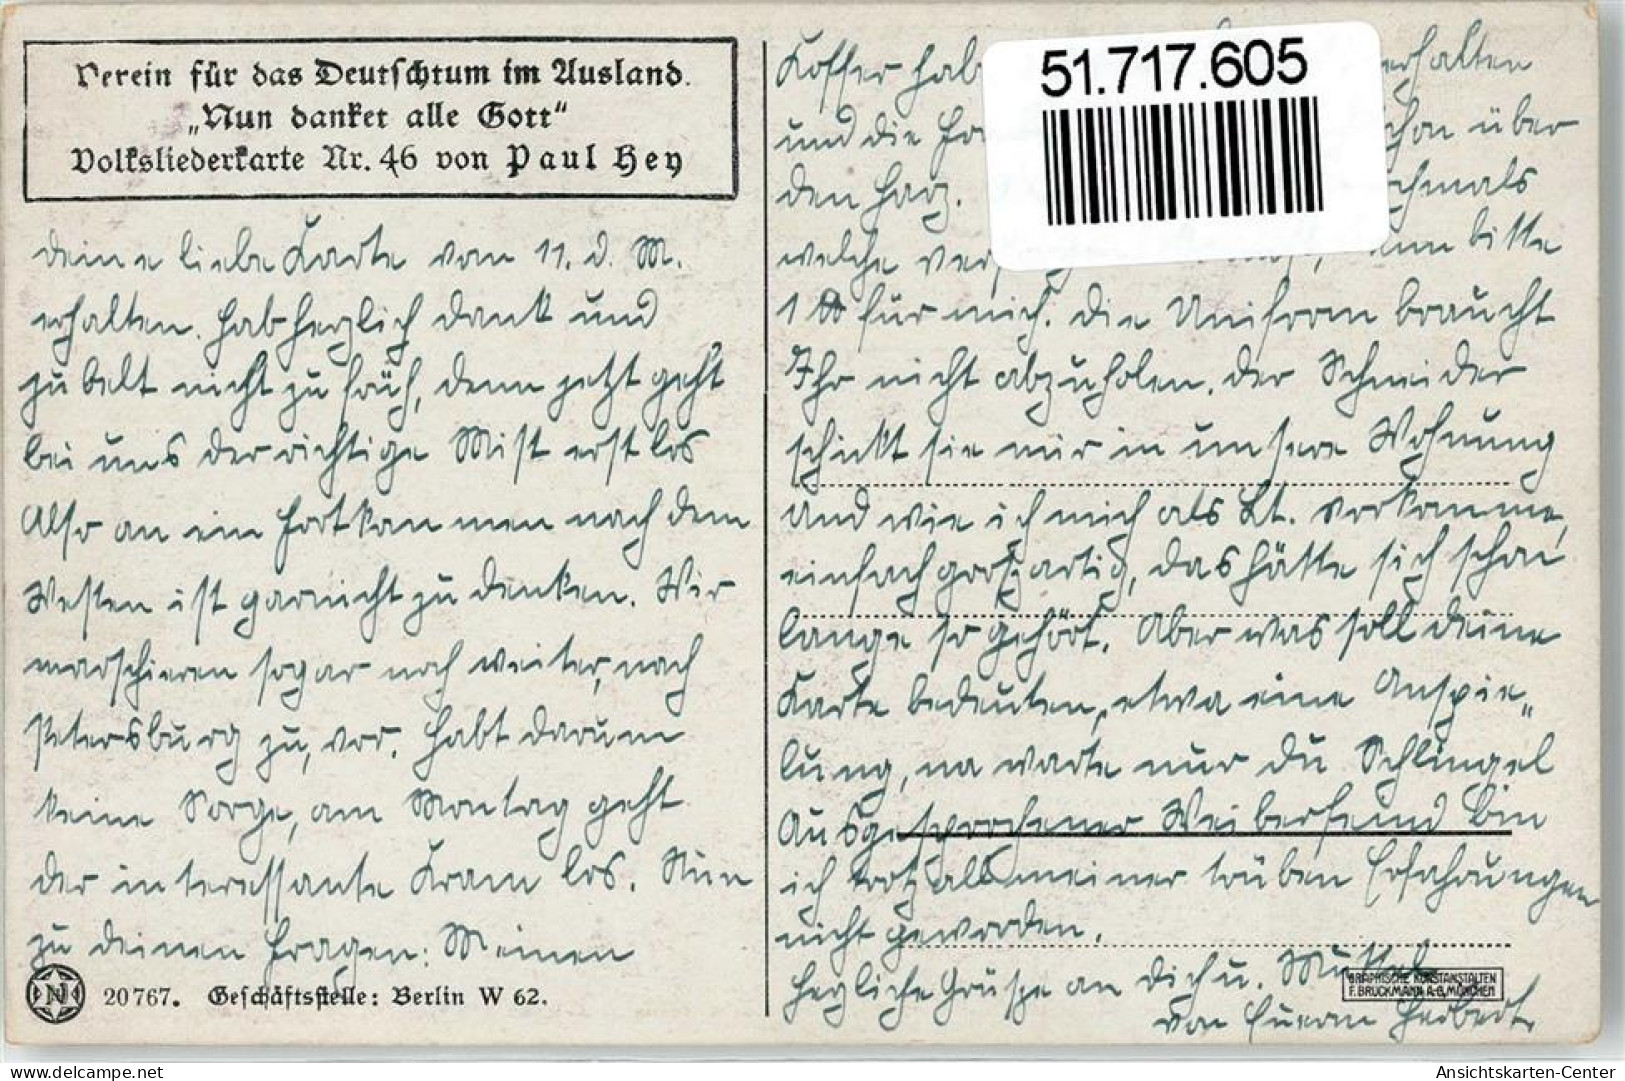 Verein für das Deutschtum im Ausland.
„Nun danket alle Gott“
Volksliederkarte Nr. 46 von Paul Hey
Deine liebe Karte vom 11. d. M.
erhalten. Hab herzlich Dank und
zu belt nicht zu früh, denn jetzt geht
bei uns der richtige Mist erst los
Also an ein Fortkommen nach dem
Westen ist garnicht zu denken. Wir
marschieren sogar noch weiter, nach
Petersburg zu, vor. Habt darum
keine Sorge, am Montag geht
der interessante Kram los. Nun
zu deinen Fragen: Meinen
20767. Geschäftsstelle: Berlin W 62.
Koffer hab erhalten
und die schon über
den Harz.
welche bitte
1 ℔ für mich. Die Uniform braucht
Ihr nicht abzuholen. Der Schneider
schickt sie mir in unsere Wohnung
Und wie ich mich als Lt. vorkomme,
einfach großartig, das hätte sich schon
lange so gehört. Aber was soll deine
Karte bedeuten, etwa eine Anspie„
lung, na warte nur du Schlingel
Ausgesprochener Weiberfeind bin
ich trotz all meiner trüben Erfahrungen
nicht geworden.
Herzliche Grüße an dich u. Muttel
von Euerm Herbert.
GRAPHISCHE KUNSTANSTALTEN
F. BRUCKMANN A-G, MÜNCHEN
51.717.605
www.delcampe.net
Ansichtskarten-Center